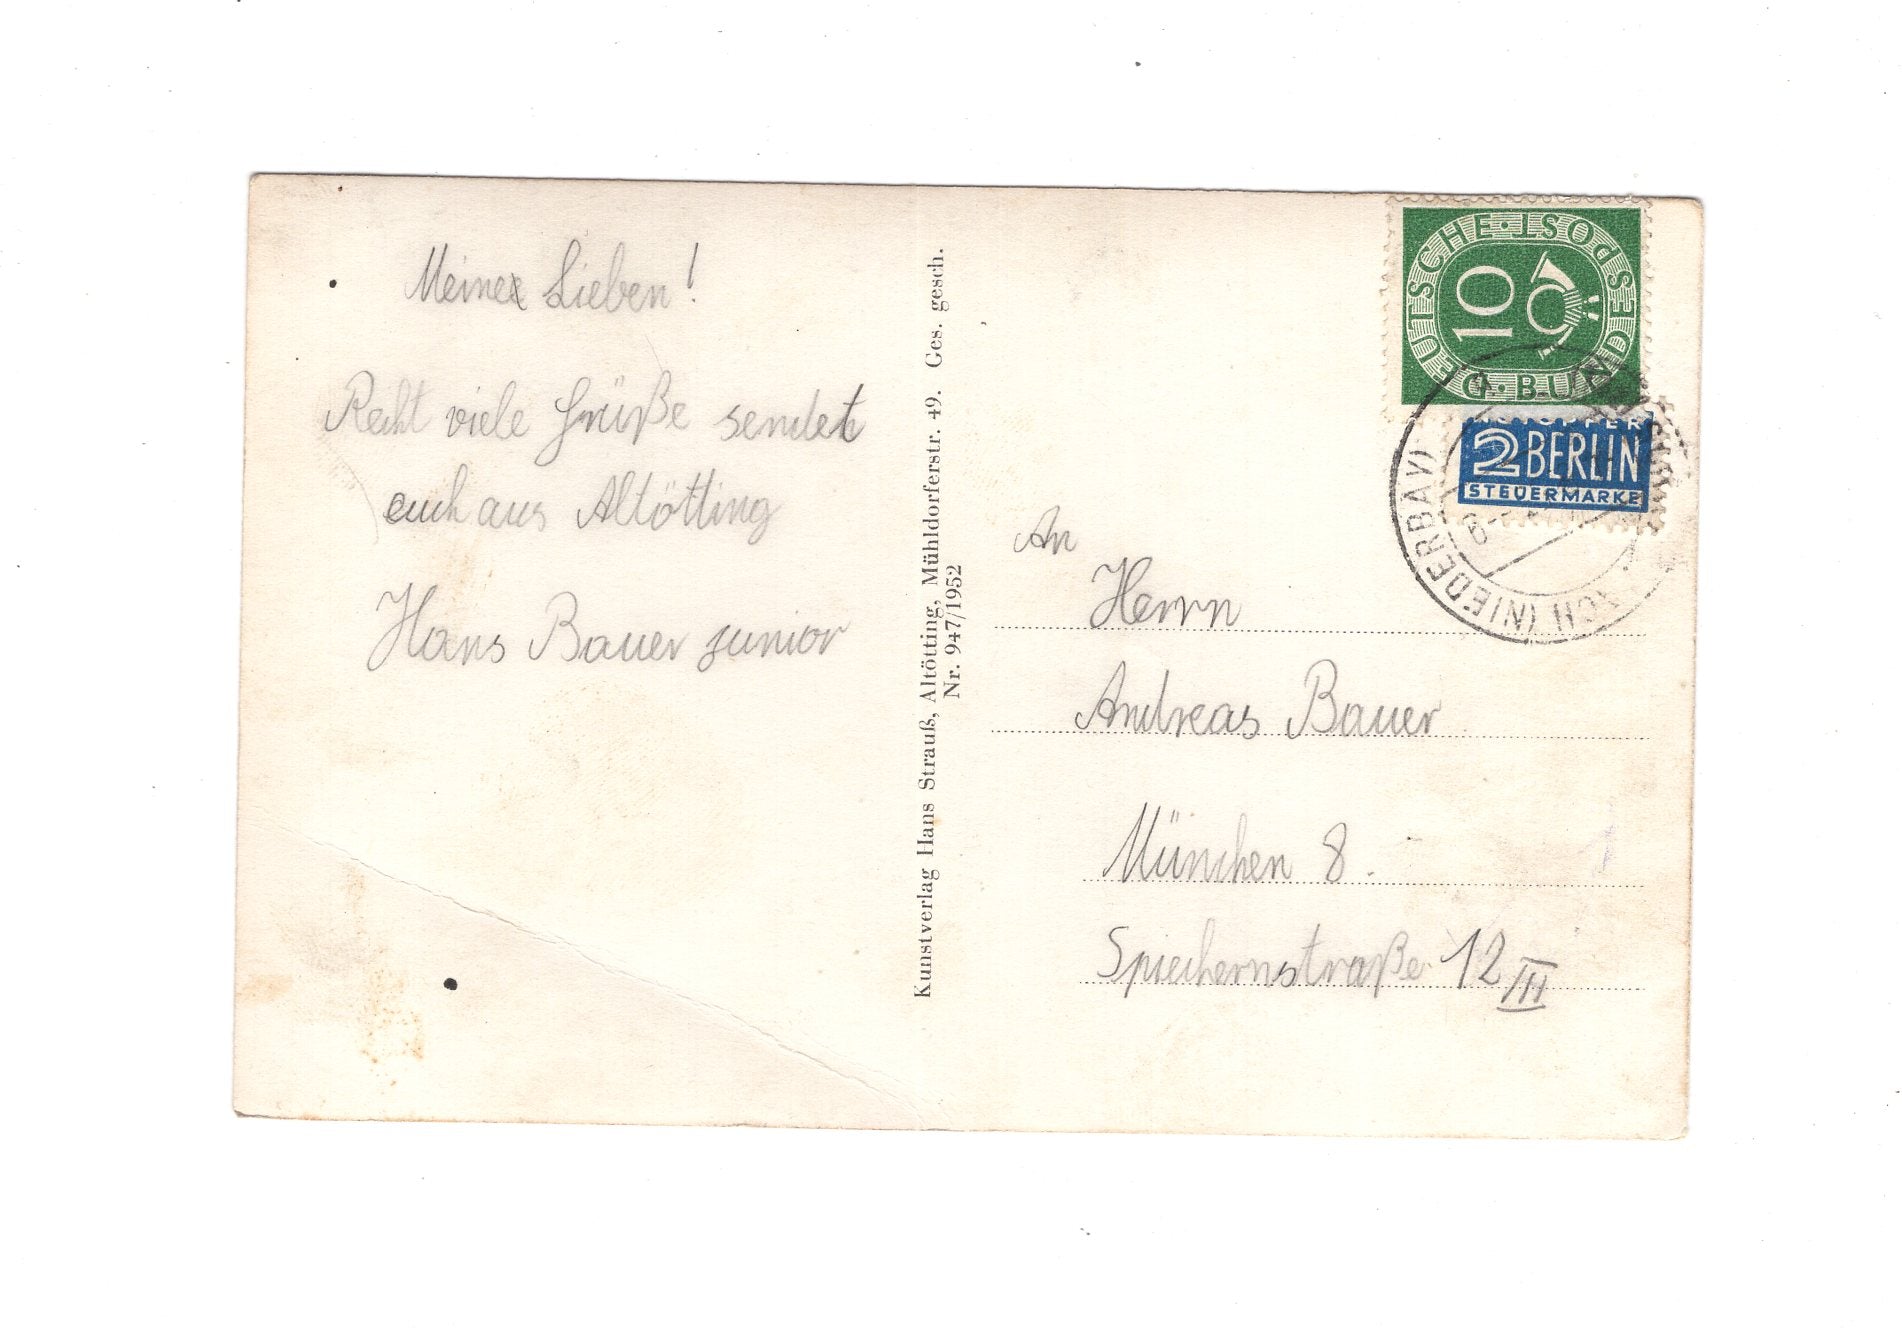 Meine Lieben!
Recht viele Grüße sendet
euch aus Altötting
Hans Bauer junior
Kunstverlag Hans Strauß, Altötting, Mühldorferstr. 49. Ges. gesch.
Nr. 947/1952
DEUTSCHE · BUNDESPOST
10
NOTOPFER
2 BERLIN
STEUERMARKE
(NIEDERBAY)
An
Herrn
Andreas Bauer
München 8.
Spichernstraße 12 III